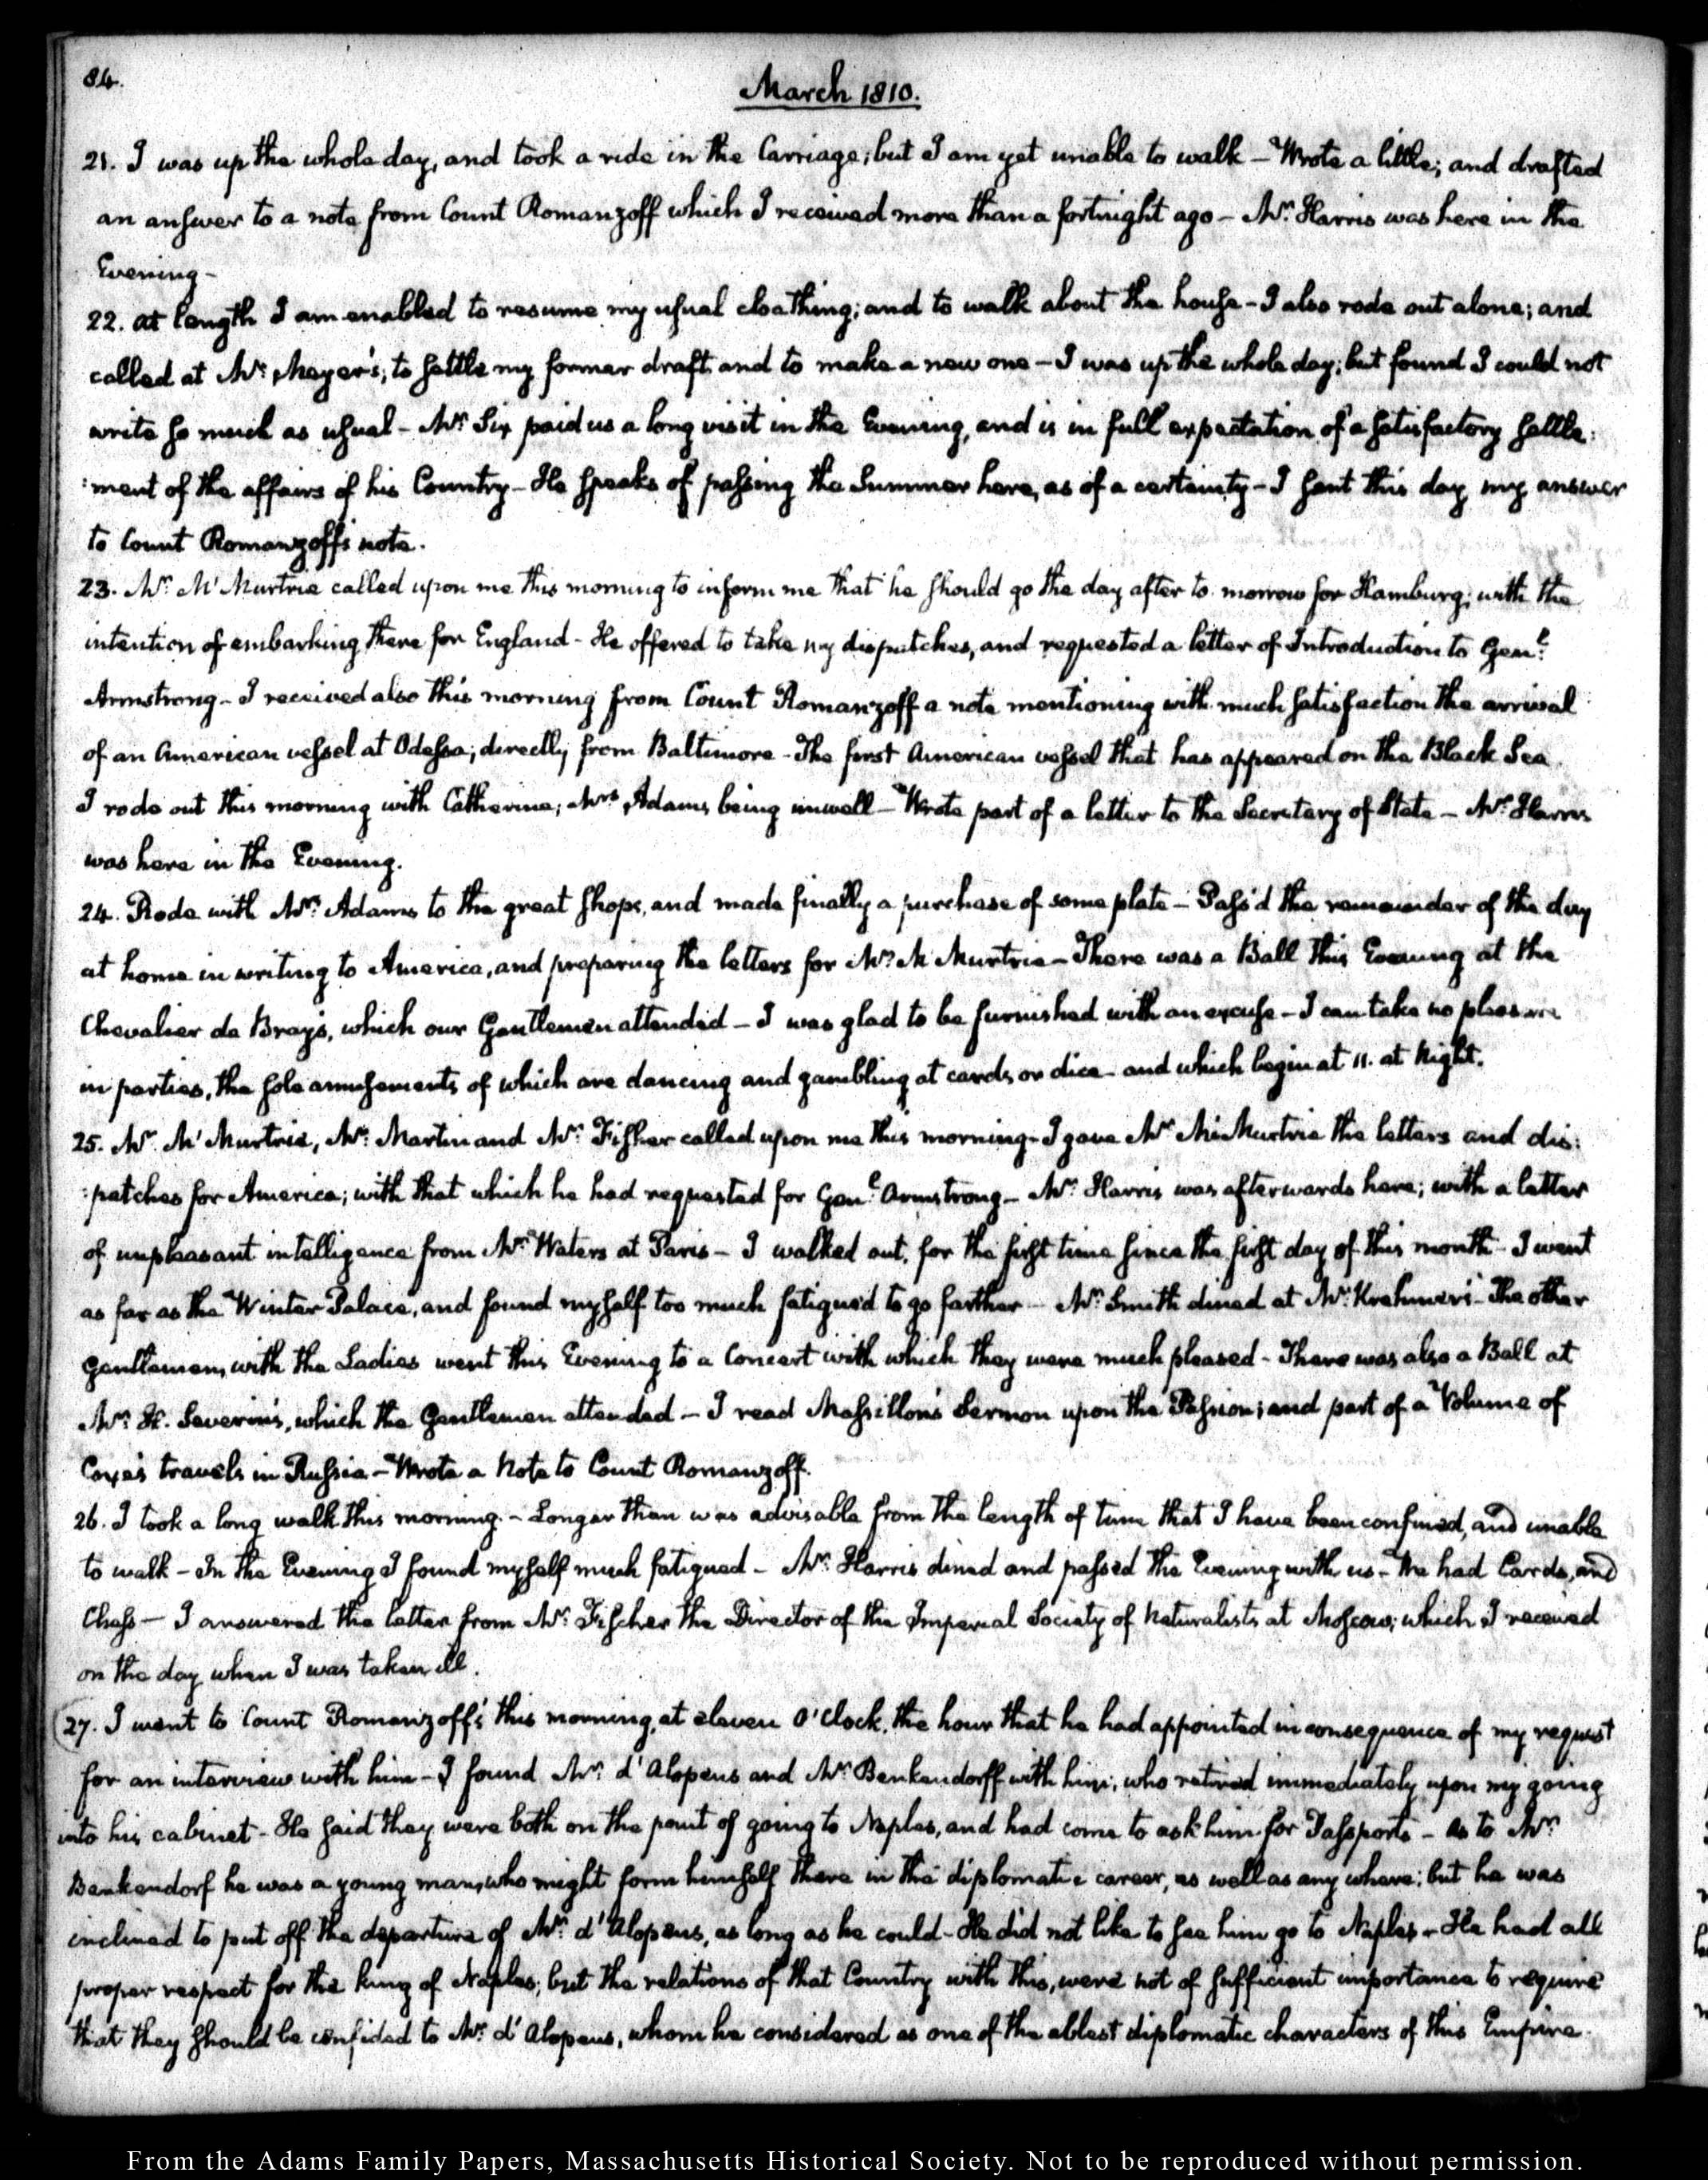 84.
March 1810.
21. I was up the whole day, and took a ride in the Carriage; but I am yet unable to walk – Wrote a little; and drafted
an answer to a note from Count Romanzoff which I received more than a fortnight ago – Mr. Harris was here in the
Evening –
22. At length I am enabled to resume my usual cloathing; and to walk about the house – I also rode out alone; and
called at Mr. Meyer's, to settle my former draft and to make a new one – I was up the whole day; but found I could not
write so much as usual – Mr. Six paid us a long visit in the Evening, and is in full expectation of a satisfactory settle:
:ment of the affairs of his Country – He speaks of passing the Summer here, as of a certainty – I sent this day my answer
to Count Romanzoff's note.
23. Mr. M'Murtrie called upon me this morning to inform me that he should go the day after to-morrow for Hamburg; with the
intention of embarking there for England – He offered to take my dispatches, and requested a letter of Introduction to Genl.
Armstrong – I received also this morning from Count Romanzoff a note mentioning with much satisfaction the arrival
of an American vessel at Odessa, directly from Baltimore – The first American vessel that has appeared on the Black Sea.
I rode out this morning with Catherine; Mrs. Adams being unwell – Wrote part of a letter to the Secretary of State – Mr. Harris
was here in the Evening.
24. Rode with Mrs. Adams to the great shops, and made finally a purchase of some plate – Pass'd the remainder of the day
at home in writing to America, and preparing the letters for Mr. M'Murtrie – There was a Ball this Evening at the
Chevalier de Bray's, which our Gentlemen attended – I was glad to be furnished with an excuse – I can take no pleasure
in parties, the sole amusements of which are dancing and gambling at cards or dice – and which begin at 11. at Night.
25. Mr. M'Murtrie, Mr. Martin and Mr. Fisher called upon me this morning – I gave Mr. McMurtrie the letters and dis:
:patches for America; with that which he had requested for Genl. Armstrong – Mr. Harris was afterwards here; with a letter
of unpleasant intelligence from Mr. Waters at Paris – I walked out, for the first time since the first day of this month – I went
as far as the Winter Palace, and found myself too much fatigued to go farther – Mr. Smith dined at Mr. Krehmer's – The other
Gentlemen, with the Ladies went this Evening to a Concert with which they were much pleased – There was also a Ball at
Mr. H. Severin's, which the Gentlemen attended – I read Massillon's Sermon upon the Passion; and part of a Volume of
Coxe's travels in Russia – Wrote a Note to Count Romanzoff.
26. I took a long walk this morning – Longer than was advisable from the length of time that I have been confined, and unable
to walk – In the Evening I found myself much fatigued – Mr. Harris dined and passed the Evening with us – We had Cards, and
Chess – I answered the letter from Mr. Fischer the Director of the Imperial Society of Naturalists at Moscow; which I received
on the day when I was taken ill.
27. I went to Count Romanzoff's this morning, at eleven O'Clock, the hour that he had appointed in consequence of my request
for an interview with him – I found Mr. d'Alopeus and Mr. Benkendorff with him; who retired immediately upon my going
into his cabinet – He said they were both on the point of going to Naples, and had come to ask him for Passports – As to Mr.
Benkendorf he was a young man, who might form himself there in the diplomatic career, as well as any where; but he was
inclined to put off the departure of Mr. d'Alopeus, as long as he could – He did not like to see him go to Naples – He had all
proper respect for the king of Naples; but the relations of that Country with this, were not of sufficient importance to require
that they should be confided to Mr. d'Alopeus, whom he considered as one of the ablest diplomatic characters of this Empire.
From the Adams Family Papers, Massachusetts Historical Society. Not to be reproduced without permission.